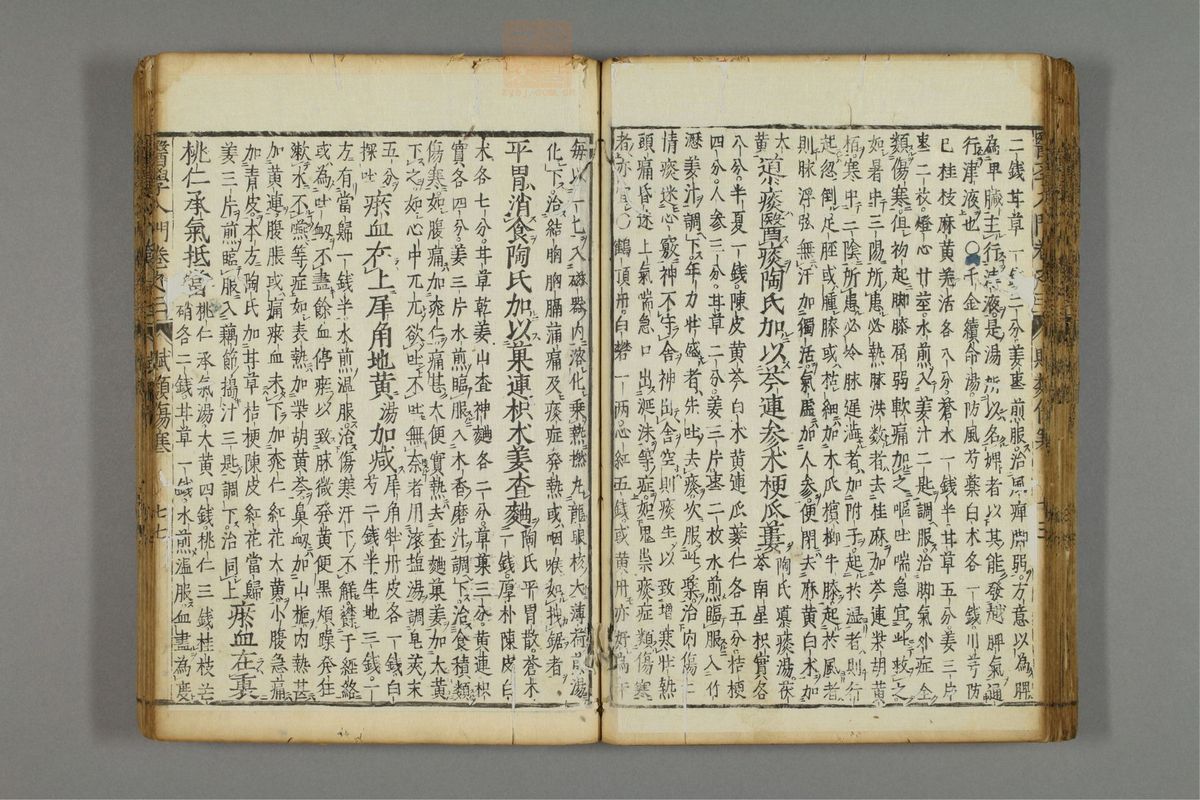 二錢甘草一錢二分姜棗煎服治風痺脚弱方意以為脾
為卑臟主行津液是湯所以名婢者以其能發越脾氣通
行津液也○千金續命湯防風芍藥白朮各一錢川芎防
已桂枝麻黃羌活各八分蒼朮一錢半甘草五分姜三片
棗二枚燈心廿莖水煎入姜汁二匙調服治脚氣外症全
類傷寒但初起脚膝屈弱軟痛加之嘔吐喘急宜此救之
如暑中三陽所患必熱脉洪数者去桂麻加芩連柴胡黃
栢寒中三陰所患必冷脉遲澁者加附子起於濕者則行
起忽倒足脛或腫膝或枯細加木瓜檳榔牛膝起於風者
則脉浮弦無汗加獨活氣虛加人參便閉去麻黃白朮加
大
黃道痰醫痰陶氏加以芩連参朮梗瓜蔞陶氏導痰湯茯
苓南星枳實各
八分半夏一錢陳皮黃芩白朮黃連瓜蔞仁各五分桔梗
四分人参三分甘草二分姜三片棗二枚水煎臨服入竹
瀝姜汁調下年力壯盛者先吐去痰次服此藥治内傷七
情痰迷心竅神不守舍神出舍空則痰生以致增寒壯熱
頭痛昏迷上氣喘急口出涎沫等症如鬼祟痰症類傷寒
者亦宜○鶴頂丹白礬一兩心紅五錢或黃丹亦好為末
每以一匕入磁器内溶化乗熱撚丸龍眼核大薄荷煎湯
化下治結胸胸膈滿痛及痰症発熱或咽喉如拽鋸者
平胃消食陶氏加以菓連枳朮姜査麯陶氏平胃散蒼朮
一錢厚朴陳皮白
朮各七分甘草乾姜山査神麯各二分草菓三分黃連枳
實各四分姜三片水煎臨服入木香磨汁調下治食積類
傷寒如腹痛加桃仁痛甚大便實熱去査麯菓姜加大黃
下之如心中兀兀欲吐不吐無奈者用滚塩湯調皂莢末
五分探吐瘀血在上犀角地黃湯加减犀角牡丹皮各一錢白
芍二錢半生地三錢一
左有當歸一錢半水煎温服治傷寒汗下不解欝于經絡
或為吐衂不盡餘血停瘀以致脉微発黃便黒煩躁発狂
漱水不嚥等症如表熱加柴胡黃芩鼻衂加山梔内熱甚
加黃連腹脹或痛瘀血未下加桃仁紅花大黃小腹急痛
加青皮本左陶氏加甘草桔梗陳皮紅花當歸
姜三片煎臨服入藕節搗汁三匙調下治同上瘀血在裏
桃仁承氣抵當桃仁承氣湯大黃四錢桃仁三錢桂枝芒
硝各二錢甘草一錢水煎温服血盡為度
醫學入門卷
賦類傷寒
七七